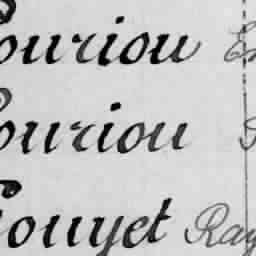 ouriou E
ouriou
ouyet Ray